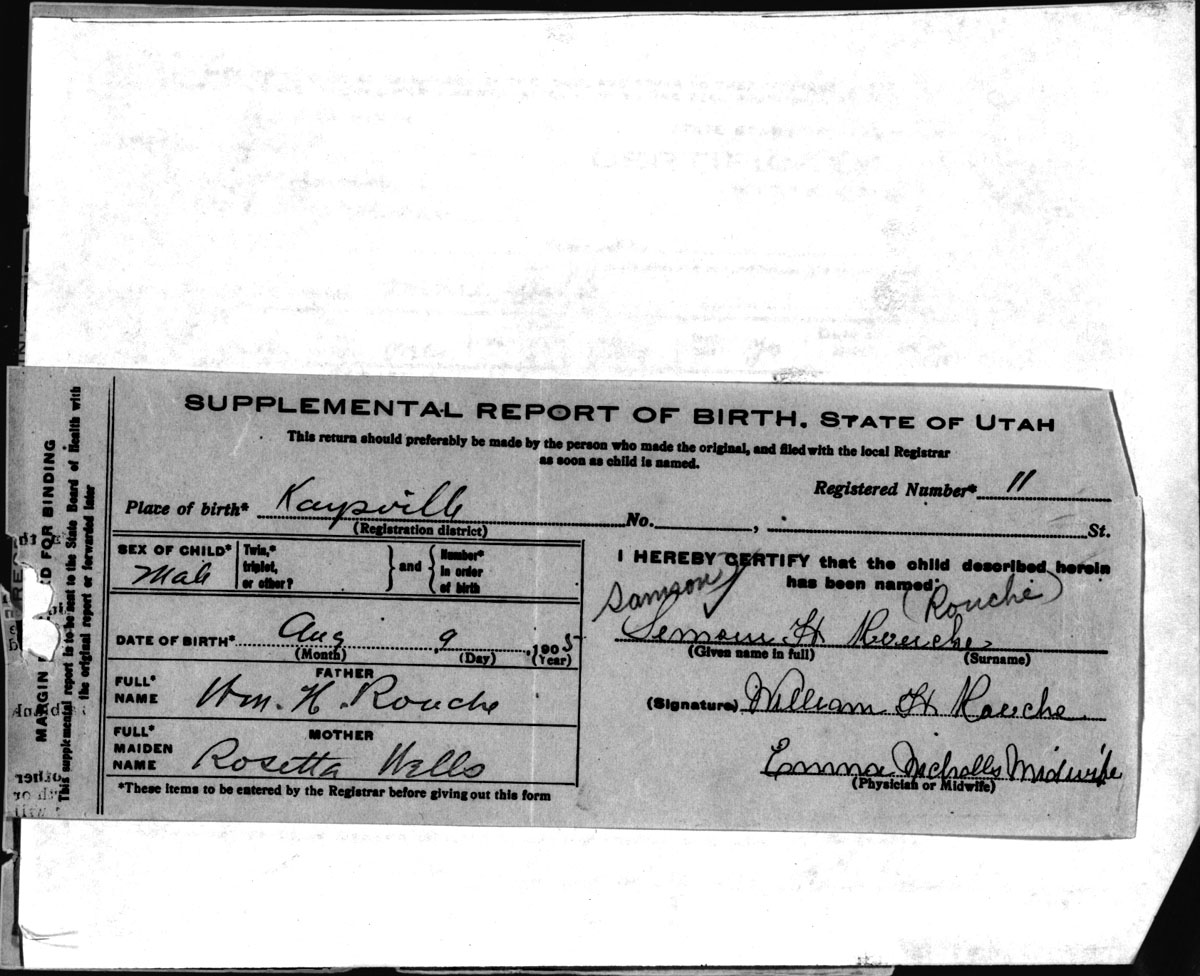 SUPPLEMENTAL REPORT OF BIRTH. STATE OF UTAH
This return should preferably be made by the person who made the original, and filed with the local Registrar
as soon as child is named.
Registered Number* 11
Place of birth* Kaysville No. , St.
(Registration district)
SEX OF CHILD* Male
Twin,* triplet, or other?
and
Number* in order of birth
DATE OF BIRTH* Aug 9, 1905
(Month) (Day) (Year)
FATHER
FULL* NAME Wm. H. Rouche
MOTHER
FULL* MAIDEN NAME Rosetta Wells
*These items to be entered by the Registrar before giving out this form
I HEREBY CERTIFY that the child described herein
has been named:
Samson (Rouche)
H Rouche
(Given name in full) (Surname)
(Signature) William H Rouche
Emma Nicholls Midwife
(Physician or Midwife)
FOR BINDING
MARGIN
This supplemental report is to be sent to the State Board of Health with
the original report or forwarded later